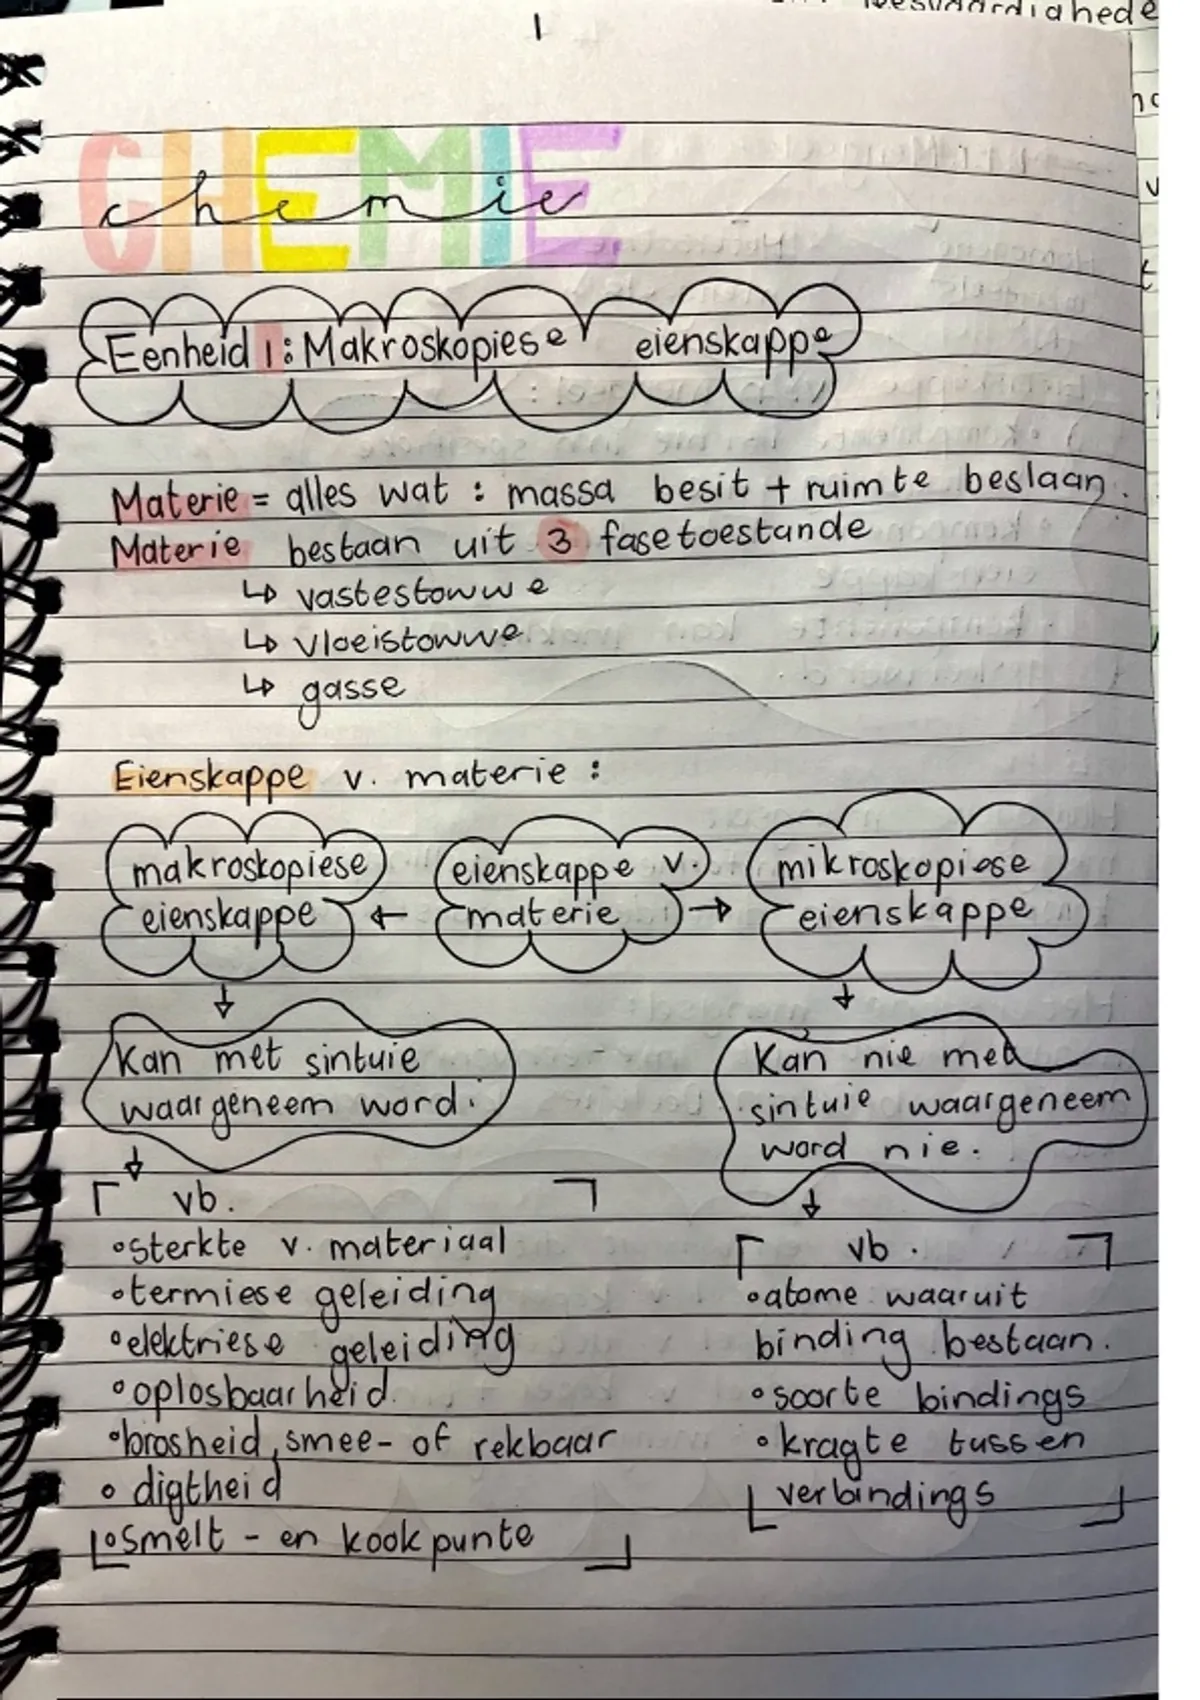 1
CHEMIE
chemie
Eenheid 1: Makroskopiese eienskappe
Materie = alles wat : massa besit + ruimte beslaan.
Materie bestaan uit 3 fasetoestande
↳ vastestowwe
↳ vloeistowwe
↳ gasse
Eienskappe v. materie :
makroskopiese
eienskappe
←
eienskappe v.
materie
→
mikroskopiese
eienskappe
↓
Kan met sintuie
waargeneem word.
↓
vb.
• sterkte v. materiaal
• termiese geleiding
• elektriese geleiding
• oplosbaarheid
• brosheid, smee- of rekbaar
• digtheid
• smelt - en kookpunte
↓
Kan nie met
sintuie waargeneem
word nie.
↓
vb.
• atome waaruit
binding bestaan.
• soorte bindings
• kragte tussen
verbindings